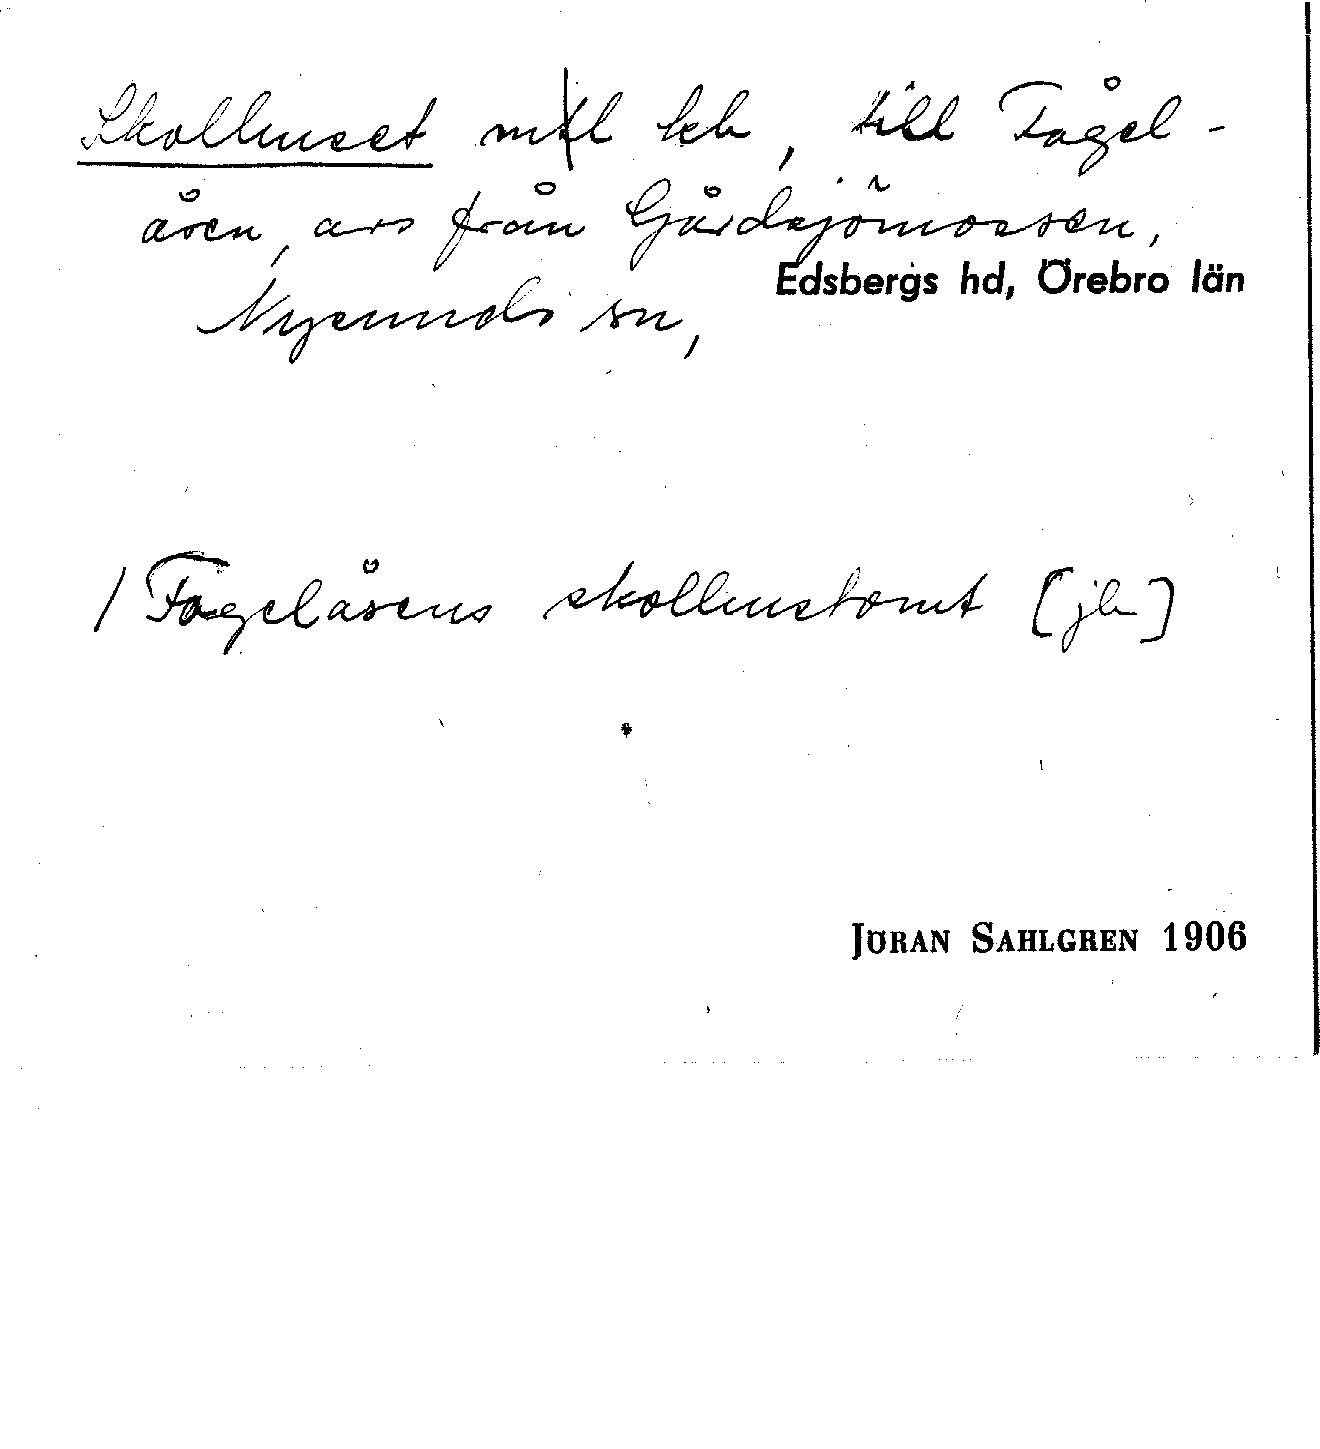 Skolhuset mtl kb, till Fågel-
åsen, avs från Gårdsjömossen,
Edsbergs hd, Örebro län
Nysunds sn,
/ Fogelåsens skolhustomt [jb]
JÖRAN SAHLGREN 1906